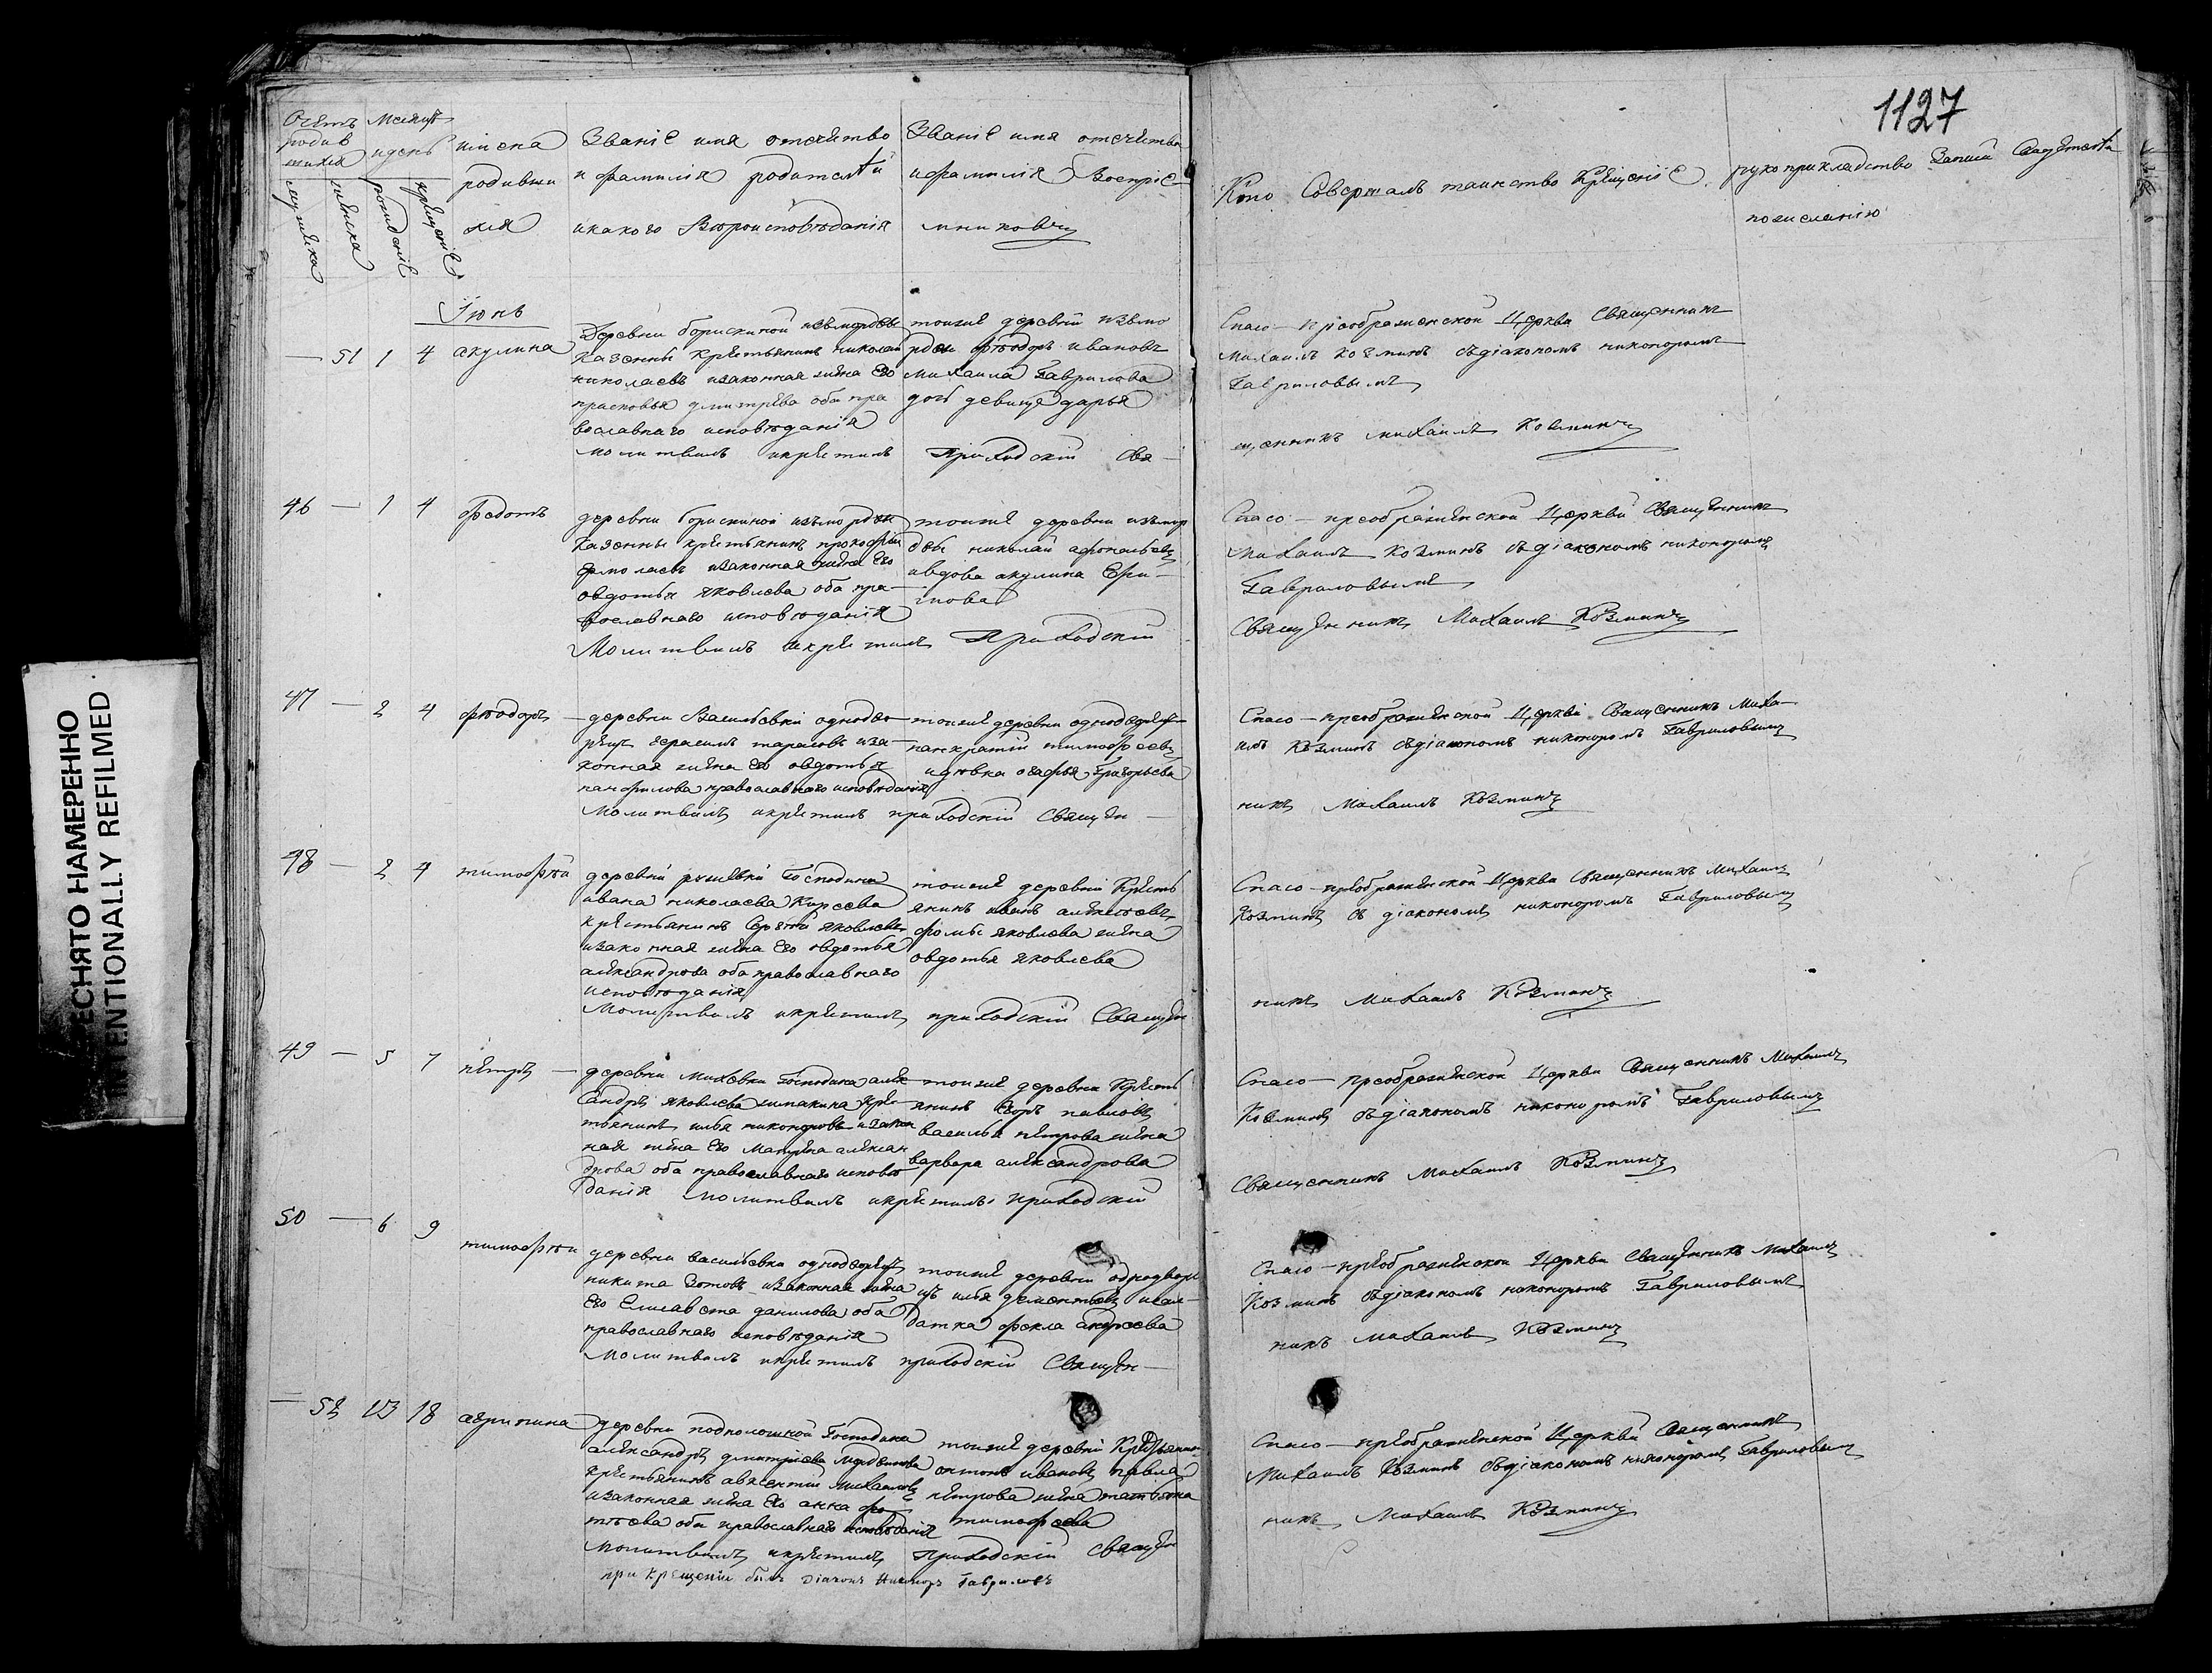 1127
Счетъ родив шихся
Месяцъ и день
имена родивши хся
Званiе имя отечитво и фамилiя родителѣй и какого Вѣроисповѣданiя
Званiе имя отечитво и фамилiя Воспрiе мниковъ
Кто Совершалъ таинство Крещенiе
рукоприкладство Записи
мужеска
женска
рожденiе
крещенiе
Iюнь
51 1 4 акулина
Деревни борискиной изъ мордвы
Казенны крѣстьянинъ николай
николаевъ изаконная жѣна Его
прасковья дмитрѣва оба пра
вославнаго исповѣданiя
молитвилъ икрѣстилъ Приходскiй Свя
тоижѣ деревни изъ мо
рдвы фѣодоръ ивановъ
михаила Гаврилова
дочь девица дарья
Спасо – преображенской Церкви Священникъ
Михаилъ Козминъ съ дiакономъ никоноромъ
Гавриловымъ
щенникъ михаилъ Козминъ
46 — 1 4 федотъ
деревни борискиной изъ мордвы
Казенны крѣстьянинъ прокофiй
Ермолаевъ изаконная жѣна Его
овдотья яковлева оба пра
вославнаго исповѣданiя
Молитвилъ икрѣстилъ Приходскiй
тоижѣ деревни изъ мор
двы николай афонасьевъ
ивдова акулина Ефи
мова
Спасо – преображѣнской Церкви Свящѣнникъ
Михаилъ Козминъ съ дiакономъ никоноромъ
Гавриловымъ
Свящѣнникъ Михаилъ Козминъ
47 — 2 4 фѣодоръ
деревни Васильевки однодво
рѣцъ герасимъ тарасовъ иза
конная жѣна Его овдотья
панфилова православнаго исповѣданiя
Молитвилъ икрѣстилъ приходскiй Свящѣн
тоижѣ деревни однодворѣцъ
панкратiй тимофеевъ
идѣвка огафья Григорьева
Спасо – преображѣнской Церкви Священникъ Миха
илъ Козминъ съ дiакономъ никоноромъ Гавриловымъ
никъ Михаилъ Козминъ
48 — 2 4 тимофѣй
деревни Господина
ивана николаева Киреева
крѣстьянинъ Сергѣй яковлевъ
изаконная жѣна Его овдотья
алѣксандрова оба православнаго
исповѣданiя
Молитвилъ икрѣстилъ приходскiй Свящѣн
тоижѣ деревни Крѣсть
янинъ иванъ алѣксѣевъ
фомы яковлева жѣна
овдотья яковлева
Спасо – прѣображѣнской Церкви Священникъ Михаилъ
Козминъ съ дiакономъ никоноромъ Гавриловымъ
никъ Михаилъ Козминъ
49 — 5 7 пѣтръ
деревни Михевки Господина алѣк
сандра яковлева крѣ
стьянинъ илья никоноровъ изакон
ная жѣна Его Матрѣна алѣксан
дрова оба православнаго исповѣ
данiя молитвилъ икрѣстилъ приходскiй
тоижѣ деревни Крѣсть
янинъ Егоръ павловъ
василья пѣтрова жѣна
варвара алѣксандрова
Спасо – преображѣнской Церкви Священникъ Михаилъ
Козминъ съ дiакономъ никоноромъ Гавриловымъ
Священникъ Михаилъ Козминъ
50 — 6 9 тимофѣи
деревни васильевки однодворѣцъ
никита изаконная жѣна
Его Елисавета данилова оба
православнаго исповѣданiя
Молитвилъ икрѣстилъ приходскiй Свящѣн
тоижѣ деревни однодворе
цъ илья дементьевъ исол
датка фекла андреева
Спасо – прѣображѣнской Церкви Свящѣнникъ Михаилъ
Козминъ съ дiакономъ никоноромъ Гавриловымъ
никъ михаилъ Козминъ
— 52 13 18 агрипина
деревни Господина
алѣксандра дмитрiева
крѣстьянинъ авксентiй михаиловъ
изаконная жѣна Его анна фо
тѣева оба православнаго исповѣданiя
Молитвилъ икрѣстилъ Приходскiй Свящѣн
при Крещенiи былъ Дiаконъ Никоноръ Гавриловъ
тоижѣ деревни Крѣстьянинъ
онтонъ ивановъ павла
пѣтрова жѣна татьяна
тимофеева
Спасо – прѣображѣнской Церкви Священникъ
Михаилъ Козминъ съ дiакономъ никоноромъ Гавриловымъ
никъ Михаилъ Козминъ
ЕСНЯТО НАМЕРЕННО
INTENTIONALLY REFILMED